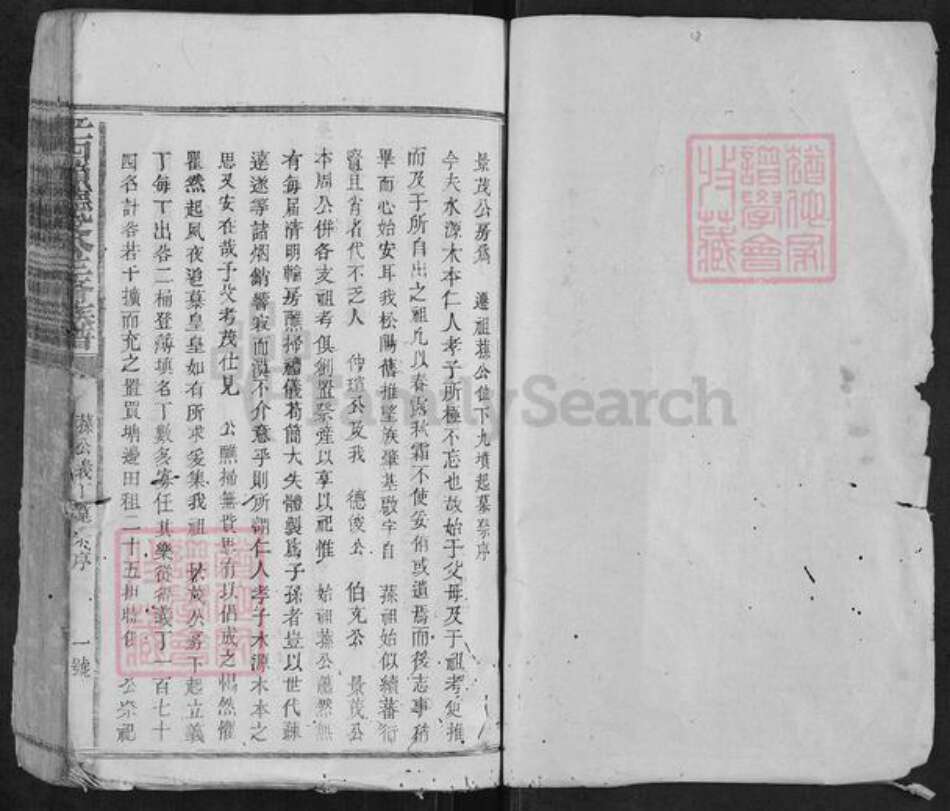 景茂公房為 遷祖蓀公位下九墳起墓祭序
今夫水源木本仁人孝子所極不忘也故始于父母及于祖考更推
而及于所自出之祖凡以春露秋霜不使妥侑或遺焉而後志事稍
畢而心始安耳我松陽舊推望族肇基啟宇自 蓀祖始似續蕃衍
賢且肖者代不乏人 仲瑄公及我 德俊公 伯充公 景茂公
本房公併各支祖考俱創置祭產以享以祀惟 始祖蓀公蕭然無
有每屆清明輪房醮掃禮儀苟簡大失體製為子孫者豈以世代疎
遠遂等諸烟銷響寂而漠不介意乎則所謂仁人孝子水源木本之
思又安在哉予父考茂仕見 公醮掃無貲思有以倡成之惕然懼
瞿然起夙夜追慕皇皇如有所求爰集我祖 茂公房下起立義
丁每丁出谷二桶登薄填名丁數多寡任其樂從得義丁一百七十
四名計谷若干擴而充之置買塆邊田租二十五 公祭祀
蓀公義丁 序
一號
猶他家譜學會收藏
猶他家譜學會收藏
FamilySearch